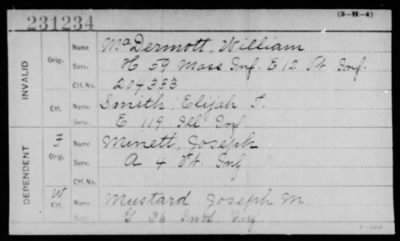 231234
(3-111-4)
INVALID
Orig.
Name McDermott, William
Serv. H 59 Mass Inf. E 12 Vt Inf.
Ctf. No. 204333
Ctf.
Name Smith Elijah T.
Serv. E 119 Ill Inf
DEPENDENT
Orig.
Name Minett, Joseph
Serv. A 4 Vt. Inf
Ctf. No.
W
Ctf.
Name Mustard, Joseph M
Serv. G 36 Ind. Inf.